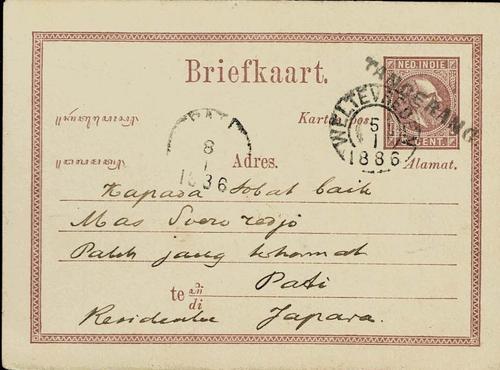 Briefkaart.
NED. INDIE
CENT.
TANGERANG
WELTEVREDEN
5
1
1886
Kartoe pos.
PATI
8
1
1886
Adres.
Alamat.
Kapada Sobat baik
Mas Soero redjo
Patih jang terhormat
te
di
Pati
Residentie Japara.